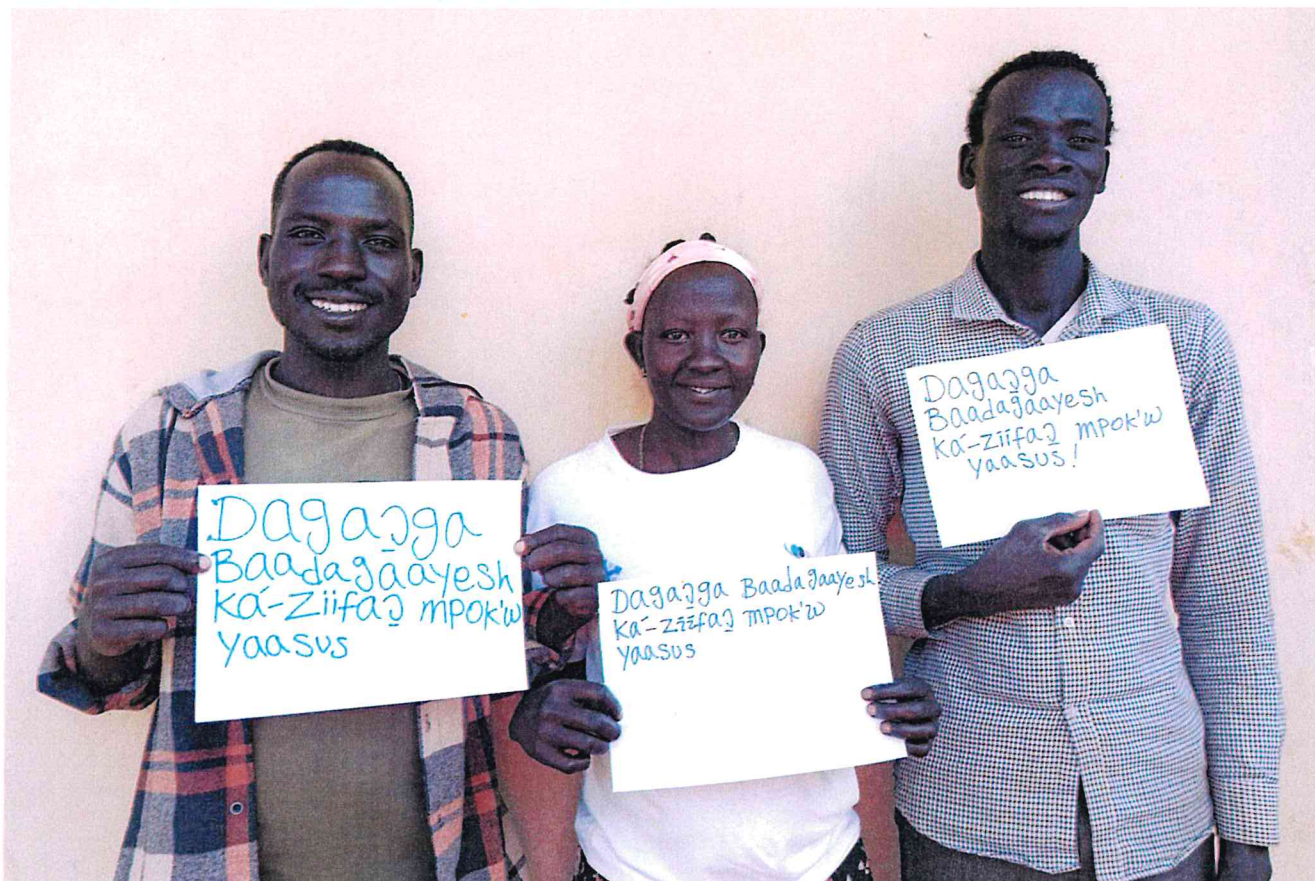 Dagaɔ̱ga
Baadagaayesh
ká-ziifaɔ̱ mpok'w
yaasus
Dagaɔ̱ga Baadagaayesh
ká-ziifaɔ̱ mpok'w
yaasus
Dagaɔ̱ga
Baadagaayesh
ká-ziifaɔ̱ mpok'w
yaasus!